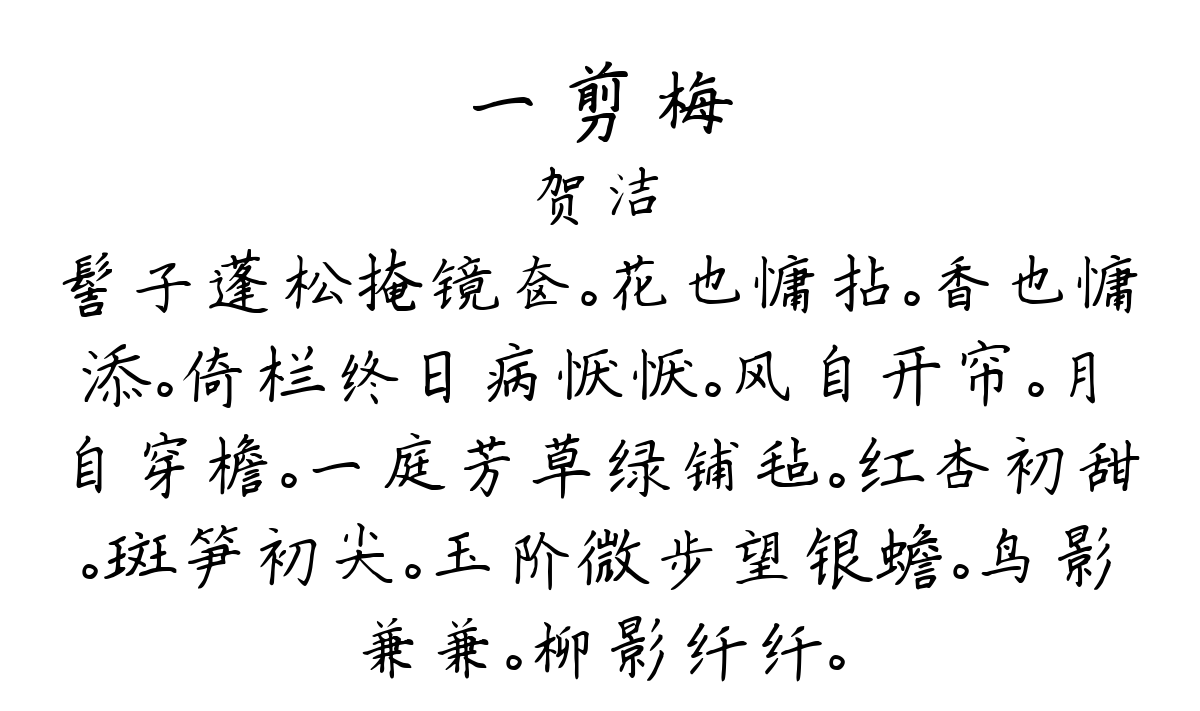 一剪梅
贺洁
髻子蓬松掩镜奁。花也慵拈。香也慵
添。倚栏终日病恹恹。风自开帘。月
自穿檐。一庭芳草绿铺毡。红杏初甜
。斑笋初尖。玉阶微步望银蟾。鸟影
兼兼。柳影纤纤。